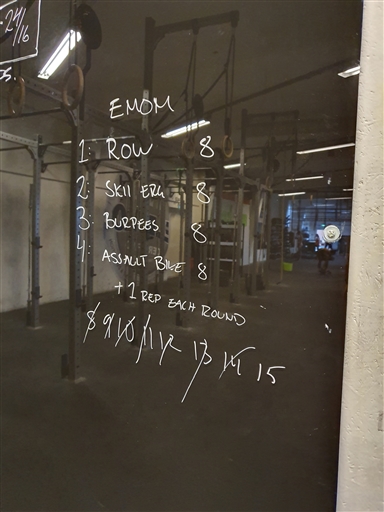 24/16
EMOM
1: ROW 8
2: SKII ERG 8
3: BURPEES 8
4: ASSAULT BIKE 8
+1 REP EACH ROUND
8 9 10 11 12 13 14 15